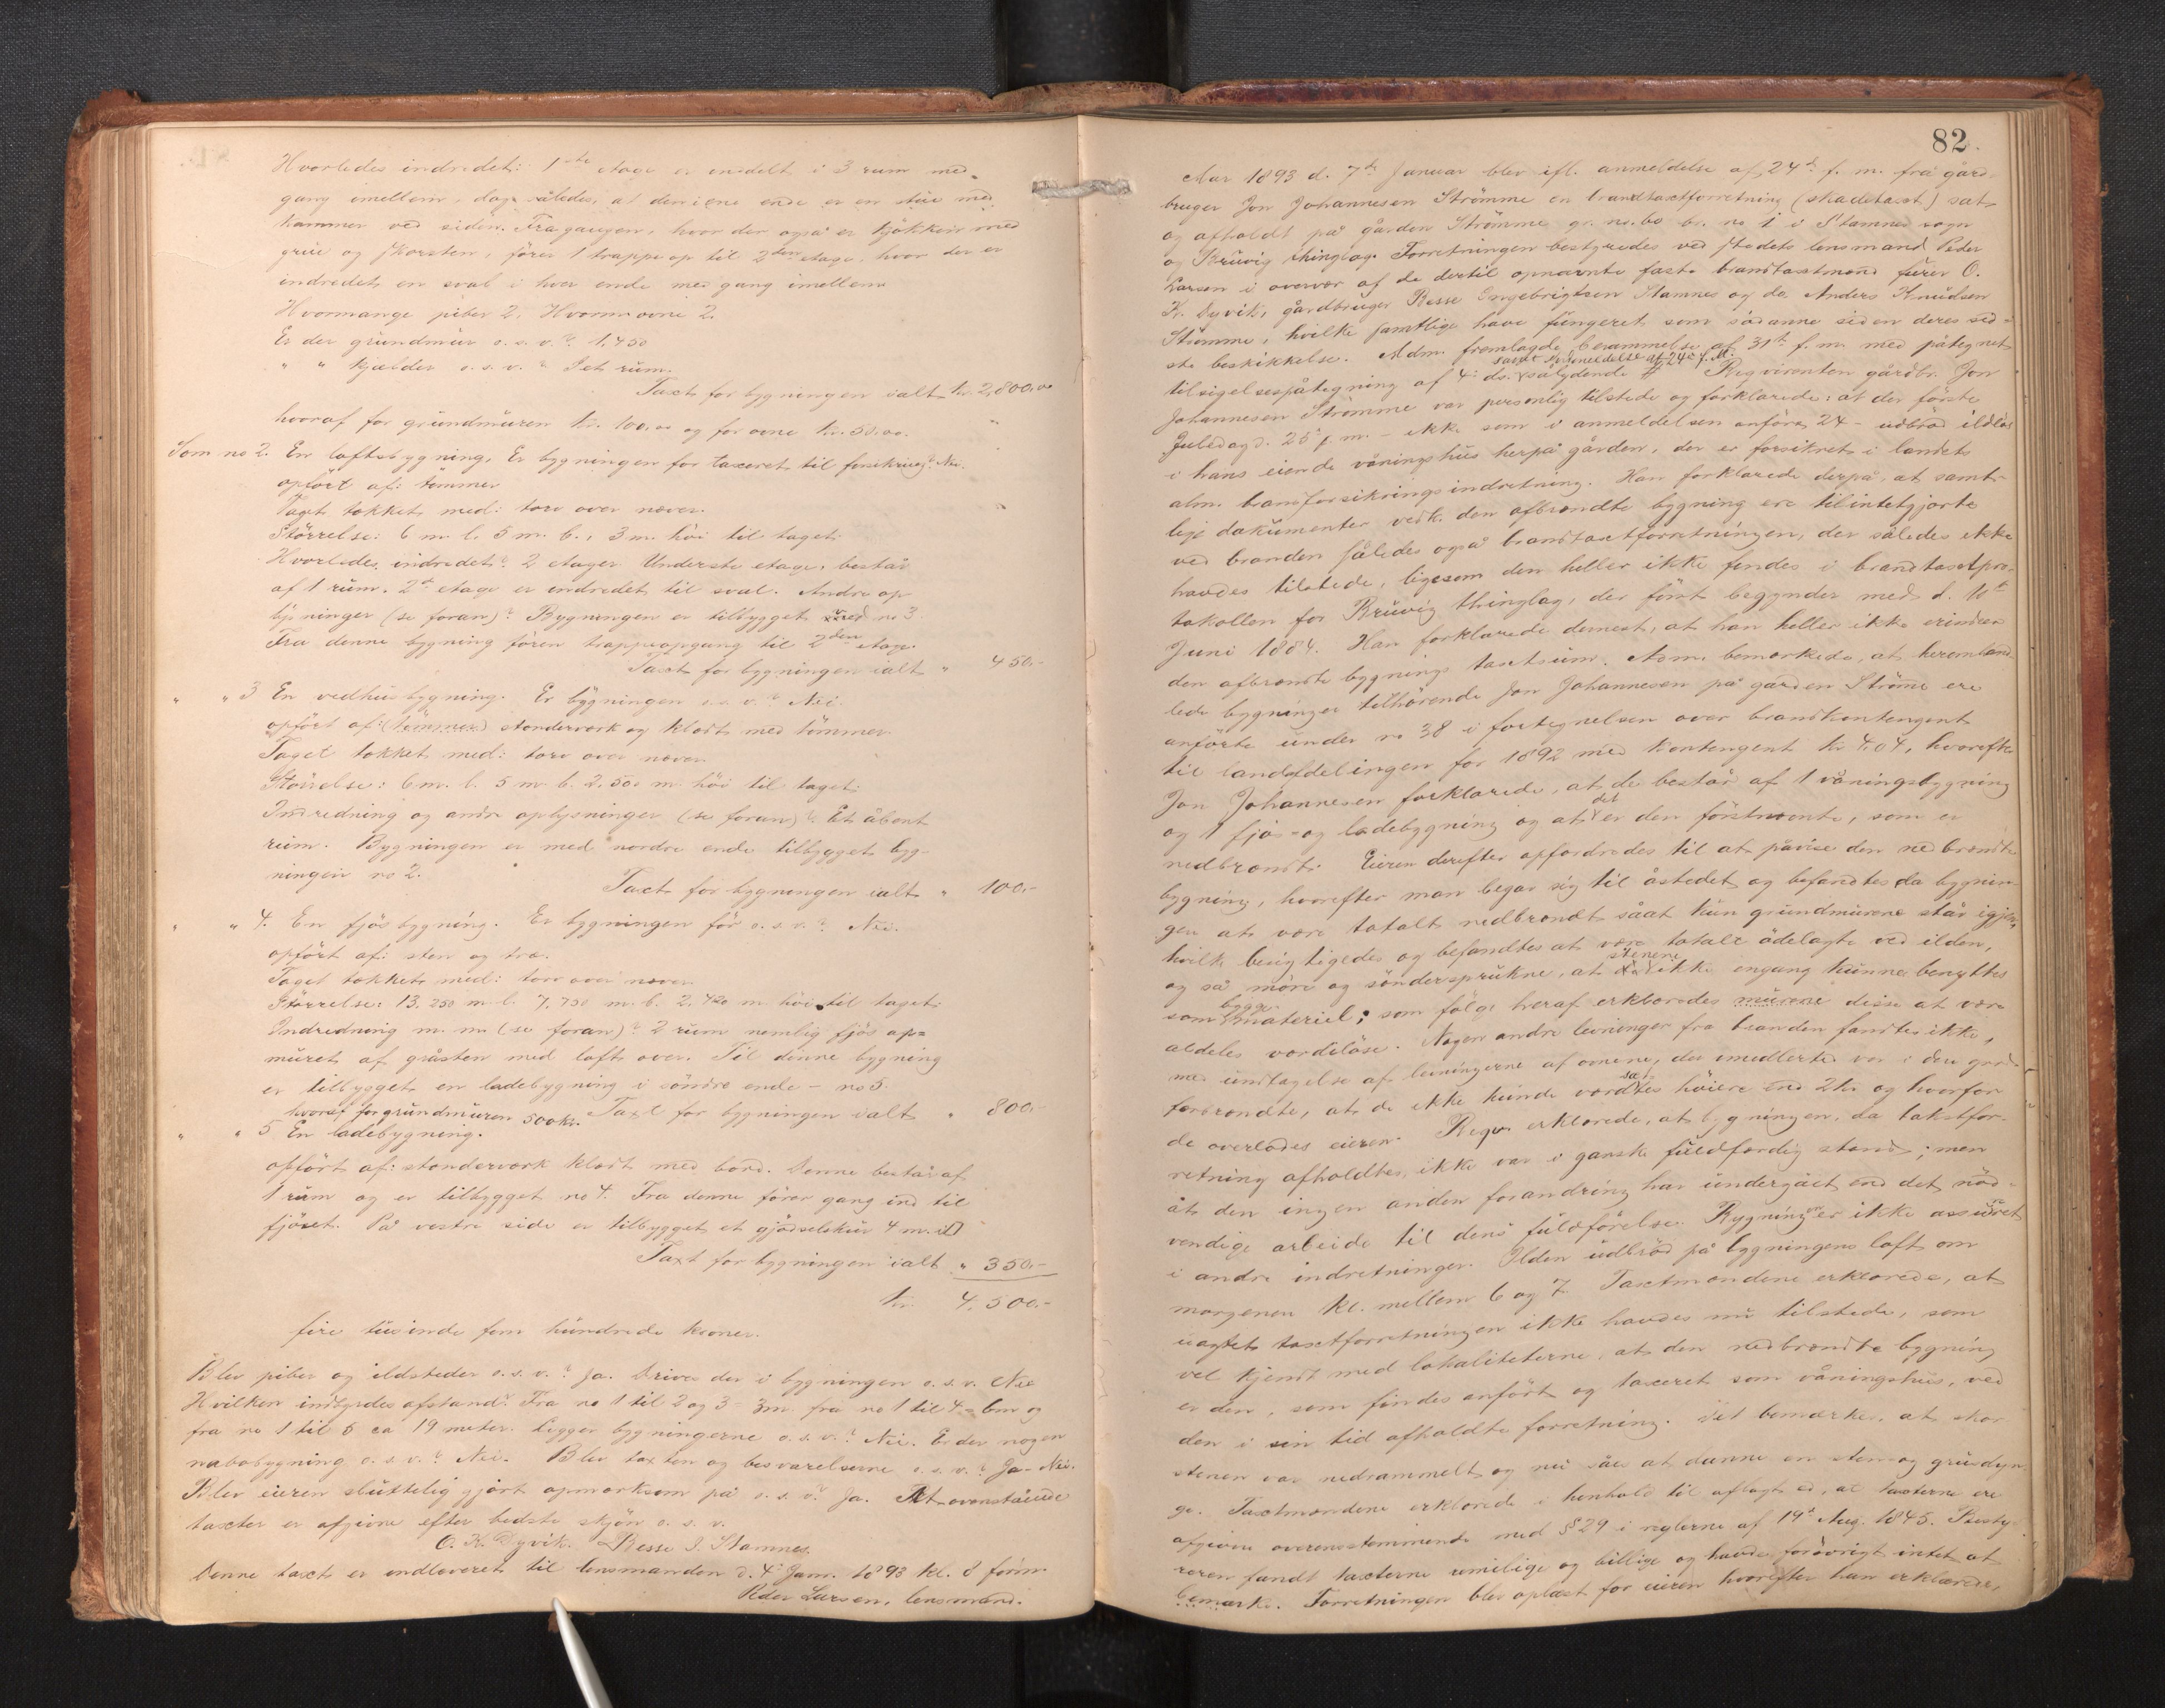 Hvorledes indredet: 1ste etage er inddelt i 3 rum med
gang imellem, dog således, at den ene ende er en stue med
kammer ved siden. Fra gangen, hvor der også er kjökken med
grue og skorsten, förer 1 trappe op til 2den etage, hvor der er
indredet en sval i hver ende med gang imellem
Hvormange piber 2. Hvorm. ovne 2.
Er der grundmur o. s. v.? 1,450
" " kjælder o. s. v.? Et rum.
Taxt for bygningen ialt kr. 2,800.00
hvoraf for grundmuren kr. 100,00 og for ovne kr. 50.00.
Som no 2. En loftsbygning. Er bygningen för taxeret til forsikring? Nei.
opfört af: tömmer
Taget tækket med: torv over næver.
Störrelse: 6 m. l. 5 m. b., 3 m. höi til taget.
Hvorledes indredet? 2 etager. Underste etage, består
af 1 rum. 2d etage er indredet til sval. Andre op
lysninger (se foran)? Bygningen er tilbygget ved no 3
Fra denne bygning förer trappeopgang til 2den etage.
Taxt for bygningen ialt " 450.-
" " 3 En vedhusbygning. Er bygningen o. s. v.? Nei.
opfört af: (tömmer) stenderværk og klædt med tömmer.
Taget tækket med: torv over næver
Störrelse: 6 m. l. 5 m. b. 2.500 m. höi til taget.
Indredning og andre oplysninger (se foran)? Et åbent
rum. Bygningen er med nordre ende tilbygget byg-
ningen no 2.
Taxt for bygningen ialt " 100.-
" " 4. En fjösbygning. Er bygningen för o. s. v.? Nei.
opfört af: sten og træ.
Taget tækket med: torv over næver
Störrelse: 13.250 m. l. 7,750 m. b. 2.420 m. höi til taget.
Indredning m. m. (se foran)? 2 rum nemlig fjös op=
muret af gråsten med loft over. Til denne bygning
er tilbygget en ladebygning i söndre ende - no 5.
hvoraf for grundmuren 500 kr. Taxt for bygningen ialt " 800.-
" " 5 En ladebygning.
opfört af: stenderværk klædt med bord. Denne består af
1 rum og er tilbygget no 4. Fra denne förer gang ind til
fjöset. På vestre side er tilbygget et gjödselskur 4 m.
Taxt for bygningen ialt " 350.-
Kr. 4,500.-
fire tusinde fem hundrede kroner.
Blev piber og ildsteder o. s. v.? Ja. Drives der i bygningen o. s. v. Nei
Hvilken indbyrdes afstand? Fra no 1 til 2 og 3 = 3 m. fra no 1 til 4 = 6 m og
fra no 1 til 5 ca 19 meter. Ligger bygningerne o. s. v.? Nei. Er der nogen
nabobygning o. s. v.? Nei. Blev taxten og besvarelserne o. s. v.? Ja - Nei.
Blev eieren sluttelig gjort opmærksom på o. s. v.? Ja. At ovenstående
taxter er afgivne efter bedste skjön o. s. v.
O. K. Dyvik. Besse I. Stamnes.
Denne taxt er indleveret til lensmanden d. 4de Jan. 1893 kl. 8 form.
Peder Larsen, lensmand.
82.
Aar 1893 d. 7de Januar blev ifl. anmeldelse af 24d f. m. fra gård-
bruger Jon Johannesen Strömme en brandtaxtforretning (skadetaxt) sat
og afholdt på gården Strömme gr. no. 60 br. no 1 i Stamnes sogn
og Bruvig thinglag. Forretningen bestyredes ved stedets lensmand Peder
Larsen i overvær af de dertil opnævnte faste brandtaxtmænd furer O.
K. Dyvik, gårdbruger Besse Engebrigtsen Stamnes og do. Anders Knudsen
Stamme, hvilke samtlige have fungeret som sådanne siden deres sid-
ste beskikkelse. Adm. fremlagde berammelse af 31te f. m. med påtegnet
samt anmeldelse af 24de f. M.
tilsigelsespåtegning af 4. ds. sålydende # Reqvirenten gårdbr. Jon
Johannesen Strömme var personlig tilstede og forklarede: at der förste
Juledag d. 25 f. m. - ikke som i anmeldelsen anföres 24 - udbröd ildlös
i hans eiende våningshus herpå gården, der er forsikret i landets
alm. brandforsikringsindretning. Han forklarede derpå, at samt-
lige dokumenter vedk. den afbrændte bygning ere tilintetgjorte
ved branden således også brandtaxtforretningen, der således ikke
havdes tilstede, ligesom den heller ikke findes i brandtaxtpro-
tokollen for Bruvig thinglag, der först begynder med d. 10de
Juni 1884. Han forklarede dernest, at han heller ikke erindrer
den afbrændte bygnings taxtsum. Adm. bemærkede, at heromhand-
lede bygninger tilhörende Jon Johannesen på gården Strömme ere
anförte under no 38 i fortegnelsen over brandkontingent
til landafdelingen for 1892 med kontingent kr. 4,04, hvorefter
Jon Johannesen forklarede, at de består af 1 våningsbygning
og 1 fjös- og ladebygning og at det er den förstnævnte, som er
nedbrændt. Eieren derefter opfordredes til at påvise den nedbrændte
bygning, hvorefter man begav sig til åstedet og befandtes da bygnin-
gen at være totalt nedbrændt såat kun grundmurene står igjen,
hvilke besigtigedes og befandtes at være totalt ödelagte ved ilden,
og så möre og söndersprukne, at stenene ikke engang kunne benyttes
som bygge materiel; som fölge heraf erklæredes murene disse at være
aldeles værdilöse. Nogen andre levninger fra branden fandtes ikke,
med undtagelse af levningerne af ovnene, der imidlertid var i den grad
forbrændte, at de ikke kunde værdsættes höiere end 2 kr og hvorfor
de overlodes eieren. Reqv. erklærede, at bygningen, da taxtfor-
retning afholdtes, ikke var i ganske fuldfærdig stand; men
at den ingen anden forandring har undergået end det nöd-
vendige arbeide til dens fuldförelse. Bygningen er ikke assureret
i andre indretninger. Ilden udbröd på bygningens loft om
morgenen kl. mellem 6 og 7. Taxtmændene erklærede, at
uagtet taxtforretningen ikke havdes nu tilstede, som
vel kjendt med lokaliteterne, at den nedbrændte bygning
er den, som findes anfört og taxeret som våningshus, ved
den i sin tid afholdte forretning. Det bemærkes, at skor
stenen var nedrammelt og nu såes at danne en sten og grusdyn
ge. Taxtmændene erklærede i henhold til aflagt ed, at taxterne ere
afgivne overensstemmende med §§ 29 i reglerne af 19d Aug. 1845. Besty-
reren fandt taxterne rimelige og billige og havde forövrigt intet at
bemærke. Forretningen blev oplæst for eieren hvorefter han erklærede,